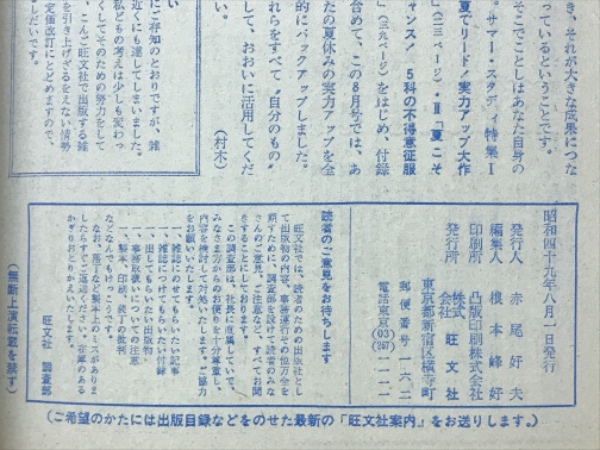 き、それが大きな成果につな
っているということです。
そこでことしはあなた自身の
。サマー・スタディ特集Ⅰ
夏でリード!実力アップ大作
(二三ページ)・Ⅱ「夏こそ
ャンス! 5科の不得意征服
」(三九ページ)をはじめ、付録
合めて、この8月号では、あ
たの夏休みの実力アップを全
的にバックアップしました。
れらをすべて"自分のもの"
して、おおいに活用してくだ
い。 (村木)
にご存知のとおりですが、雑
近くにも達してしまいました。
私どもの考えは少しも変わっ
くしてそのための努力をして
、こんご旺文社で出版する雑
を引き上げざるをえない情勢
定価改訂にとどめますので、
しだいです。
昭和四十九年八月一日発行
発行人 赤尾好夫
編集人 根本峰好
印刷所 凸版印刷株式会社
発行所 株式会社 旺文社
東京都新宿区横寺町
郵便番号 一六二
電話東京(03)(267)一一一一
読者のご意見をお待ちします
旺文社では、読者のための出版社とし
て出版物の内容、事務進行その他万全を
期すために、調査部を設けて読者のみな
さんのご意見、ご注意など、すべてお聞
きすることにしております。
この調査部は、社長に直属していて、
みなさま方からのお便りを十分尊重し、
内容を検討して対処いたします。ご協力
をお願いいたします。
一、雑誌にのせてもらいたい記事
一、雑誌につけてもらいたい付録
一、出してもらいたい出版物
一、事務取扱いについての注意
一、製本、印刷、装丁の批判
などなんでもけっこうです。
なお、落丁など製本上のミスがありま
したらすぐご返送ください。在庫のある
かぎりおとりかえいたします。
旺文社 調査部
(無断上演転載を禁ず)
(ご希望のかたには出版目録などをのせた最新の「旺文社案内」をお送りします。)